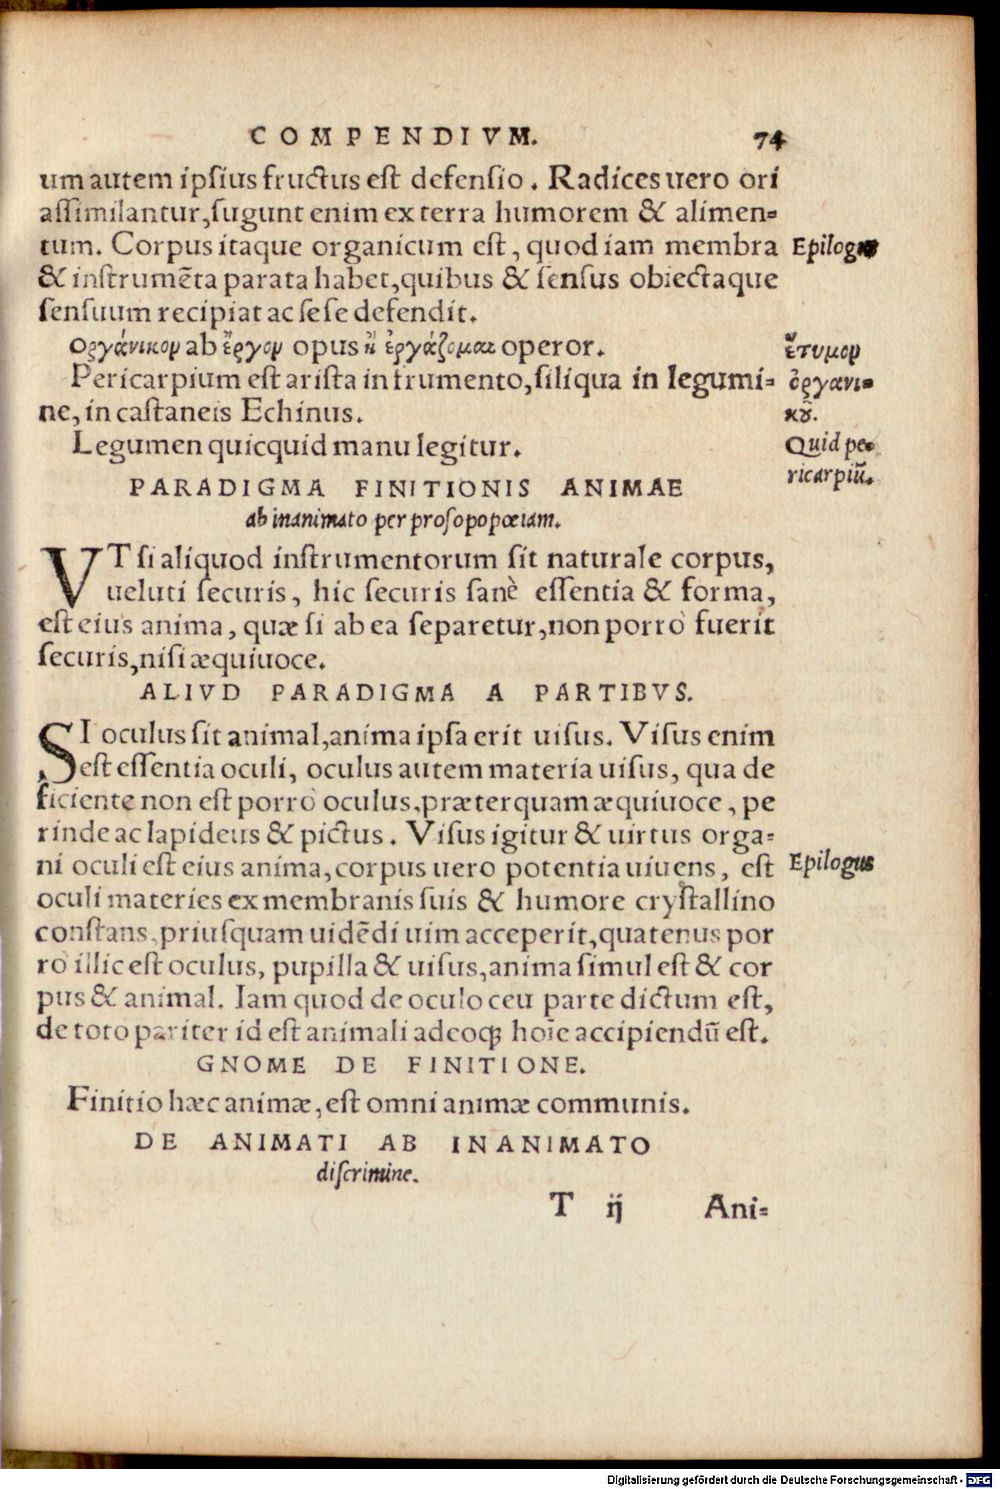 COMPENDIVM. 74
um autem ipsius fructus est defensio. Radices uero ori
assimilantur, sugunt enim ex terra humorem & alimen=
tum. Corpus itaque organicum est, quod iam membra
Epilogus
& instrumēta parata habet, quibus & sensus obiectaque
sensuum recipiat ac sese defendit.
Οργάνικον ab ἔργον opus ἢ ἐργάζομαι operor.
ἔτυμον
Pericarpium est arista in frumento, siliqua in legumi=
ὀργανι=
ne, in castaneis Echinus.
κȣ͂.
Legumen quicquid manu legitur.
Quid pe=
ricarpiū.
PARADIGMA FINITIONIS ANIMAE
ab inanimato per prosopopœiam.
VT si aliquod instrumentorum sit naturale corpus,
ueluti securis, hic securis sanè essentia & forma,
est eius anima, quæ si ab ea separetur, non porrò fuerit
securis, nisi æquiuoce.
ALIVD PARADIGMA A PARTIBVS.
SI oculus sit animal, anima ipsa erit uisus. Visus enim
est essentia oculi, oculus autem materia uisus, qua de
ficiente non est porrò oculus, præterquam æquiuoce, pe
rinde ac lapideus & pictus. Visus igitur & uirtus orga=
ni oculi est eius anima, corpus uero potentia uiuens, est
Epilogus
oculi materies ex membranis suis & humore crystallino
constans, priusquam uidēdi uim acceperit, quatenus por
rò illic est oculus, pupilla & uisus, anima simul est & cor
pus & animal. Iam quod de oculo ceu parte dictum est,
de toto pariter id est animali adeoq; hoīe accipiendū est.
GNOME DE FINITIONE.
Finitio hæc animæ, est omni animæ communis.
DE ANIMATI AB INANIMATO
discrimine.
T ij Ani=
Digitalisierung gefördert durch die Deutsche Forschungsgemeinschaft - DFG